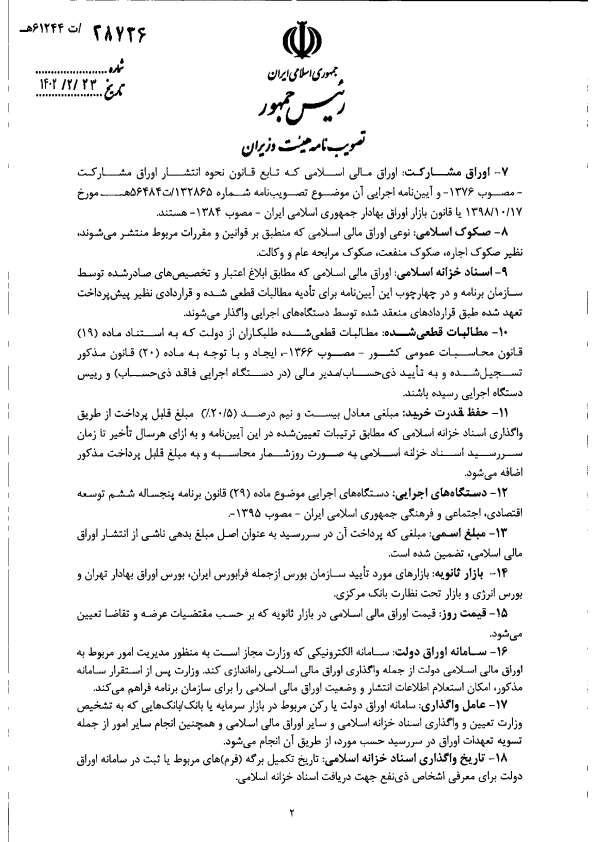 ۲۸۷۲۶ /ت ۶۱۲۴۴هـ
شماره
تاریخ ۱۴۰۲/۲/۲۳
جمهوری اسلامی ایران
رئیس جمهور
تصویب نامه هیئت وزیران
۷- اوراق مشارکت: اوراق مالی اسلامی که تابع قانون نحوه انتشار اوراق مشارکت
- مصوب ۱۳۷۶- و آیین‌نامه اجرایی آن موضوع تصویب‌نامه شماره ۱۳۲۸۶۵/ت۵۶۴۸۴هـ مورخ
۱۳۹۸/۱۰/۱۷ یا قانون بازار اوراق بهادار جمهوری اسلامی ایران - مصوب ۱۳۸۴- هستند.
۸- صکوک اسلامی: نوعی اوراق مالی اسلامی که منطبق بر قوانین و مقررات مربوط منتشر می‌شوند،
نظیر صکوک اجاره، صکوک منفعت، صکوک مرابحه عام و وکالت.
۹- اسناد خزانه اسلامی: اوراق مالی اسلامی که مطابق ابلاغ اعتبار و تخصیص‌های صادرشده توسط
سازمان برنامه و در چهارچوب این آیین‌نامه برای تأدیه مطالبات قطعی شده و قراردادی نظیر پیش‌پرداخت
تعهد شده طبق قراردادهای منعقد شده توسط دستگاه‌های اجرایی واگذار می‌شوند.
۱۰- مطالبات قطعی‌شده: مطالبات قطعی‌شده طلبکاران از دولت که به استناد ماده (۱۹)
قانون محاسبات عمومی کشور - مصوب ۱۳۶۶-، ایجاد و با توجه به ماده (۲۰) قانون مذکور
تسجیل‌شده و به تأیید ذی‌حساب/مدیر مالی (در دستگاه اجرایی فاقد ذی‌حساب) و رییس
دستگاه اجرایی رسیده باشند.
۱۱- حفظ قدرت خرید: مبلغی معادل بیست و نیم درصد (۲۰/۵٪) مبلغ قابل پرداخت از طریق
واگذاری اسناد خزانه اسلامی که مطابق ترتیبات تعیین‌شده در این آیین‌نامه و به ازای هرسال تأخیر تا زمان
سررسید اسناد خزانه اسلامی به صورت روزشمار محاسبه و به مبلغ قابل پرداخت مذکور
اضافه می‌شود.
۱۲- دستگاه‌های اجرایی: دستگاه‌های اجرایی موضوع ماده (۲۹) قانون برنامه پنجساله ششم توسعه
اقتصادی، اجتماعی و فرهنگی جمهوری اسلامی ایران - مصوب ۱۳۹۵-.
۱۳- مبلغ اسمی: مبلغی که پرداخت آن در سررسید به عنوان اصل مبلغ بدهی ناشی از انتشار اوراق
مالی اسلامی، تضمین شده است.
۱۴- بازار ثانویه: بازارهای مورد تأیید سازمان بورس ازجمله فرابورس ایران، بورس اوراق بهادار تهران و
بورس انرژی و بازار تحت نظارت بانک مرکزی.
۱۵- قیمت روز: قیمت اوراق مالی اسلامی در بازار ثانویه که بر حسب مقتضیات عرضه و تقاضا تعیین
می‌شود.
۱۶- سامانه اوراق دولت: سامانه الکترونیکی که وزارت مجاز است به منظور مدیریت امور مربوط به
اوراق مالی اسلامی دولت از جمله واگذاری اوراق مالی اسلامی راه‌اندازی کند. وزارت پس از استقرار سامانه
مذکور، امکان استعلام اطلاعات انتشار و وضعیت اوراق مالی اسلامی را برای سازمان برنامه فراهم می‌کند.
۱۷- عامل واگذاری: سامانه اوراق دولت یا رکن مربوط در بازار سرمایه یا بانک/بانک‌هایی که به تشخیص
وزارت تعیین و واگذاری اسناد خزانه اسلامی و سایر اوراق مالی اسلامی و همچنین انجام سایر امور از جمله
تسویه تعهدات اوراق در سررسید حسب مورد، از طریق آن انجام می‌شود.
۱۸- تاریخ واگذاری اسناد خزانه اسلامی: تاریخ تکمیل برگه (فرم)های مربوط یا ثبت در سامانه اوراق
دولت برای معرفی اشخاص ذی‌نفع جهت دریافت اسناد خزانه اسلامی.
۲